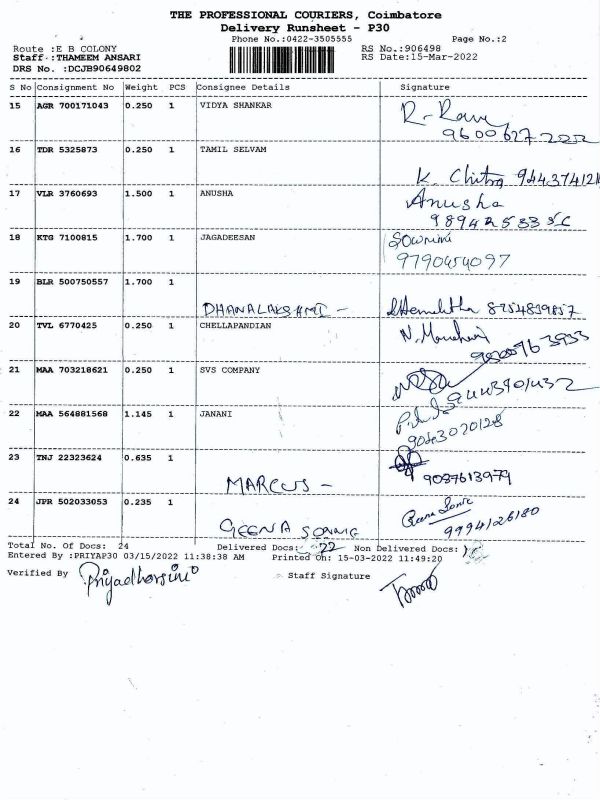 THE PROFESSIONAL COURIERS, Coimbatore
Delivery Runsheet - P30
Phone No.:0422-3505555 Page No.:2
Route :E B COLONY RS No.:906498
Staff :THAMEEM ANSARI RS Date:15-Mar-2022
DRS No. :DCJB90649802
S No Consignment No Weight PCS Consignee Details Signature
15 AGR 700171043 0.250 1 VIDYA SHANKAR R-
9600627
16 TDR 5325873 0.250 1 TAMIL SELVAM
K. Chitra 944374121
17 VLR 3760693 1.500 1 ANUSHA Anusha
18 KTG 7100815 1.700 1 JAGADEESAN
9790454097
19 BLR 500750557 1.700 1
DHANALAKSHMI - 8754839857
20 TVL 6770425 0.250 1 CHELLAPANDIAN N.
21 MAA 703218621 0.250 1 SVS COMPANY
22 MAA 564881568 1.145 1 JANANI
9043070128
23 TNJ 22323624 0.635 1
MARCUS - 9087613979
24 JPR 502033053 0.235 1
GEENA 9994126180
Total No. Of Docs: 24 Delivered Docs: 22 Non Delivered Docs:
Entered By :PRIYAP30 03/15/2022 11:38:38 AM Printed On: 15-03-2022 11:49:20
Verified By Priyadharsini Staff Signature